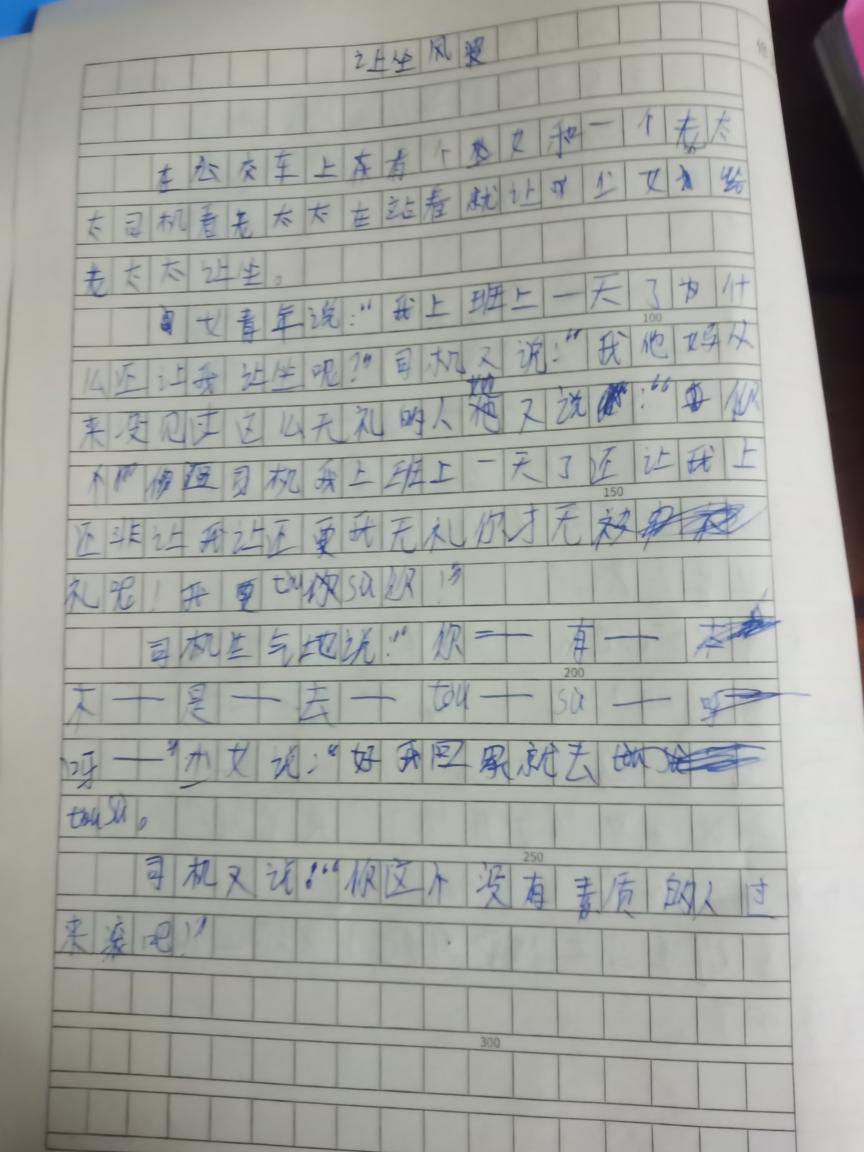 让坐风波
在公交车上有个少女和一个老太
太司机看老太太在站着就让少女给
老太太让坐。
女青年说:“我上班上一天了为什
么还让我让坐呢?”司机又说:“我他妈从
100
来没见过这么无礼的人她又说:“你
个司机我上班上一天了还让我上
150
还非让我让还更我无礼你才无
礼呢!我要tou你su你!”
司机生气地说:“你——有——本
200
不——是——去——tou——su——呀
呀——”少女说:“好我回家就去
tou su。
250
司机又说:“你这个没有素质的人过
来滚吧!”
300